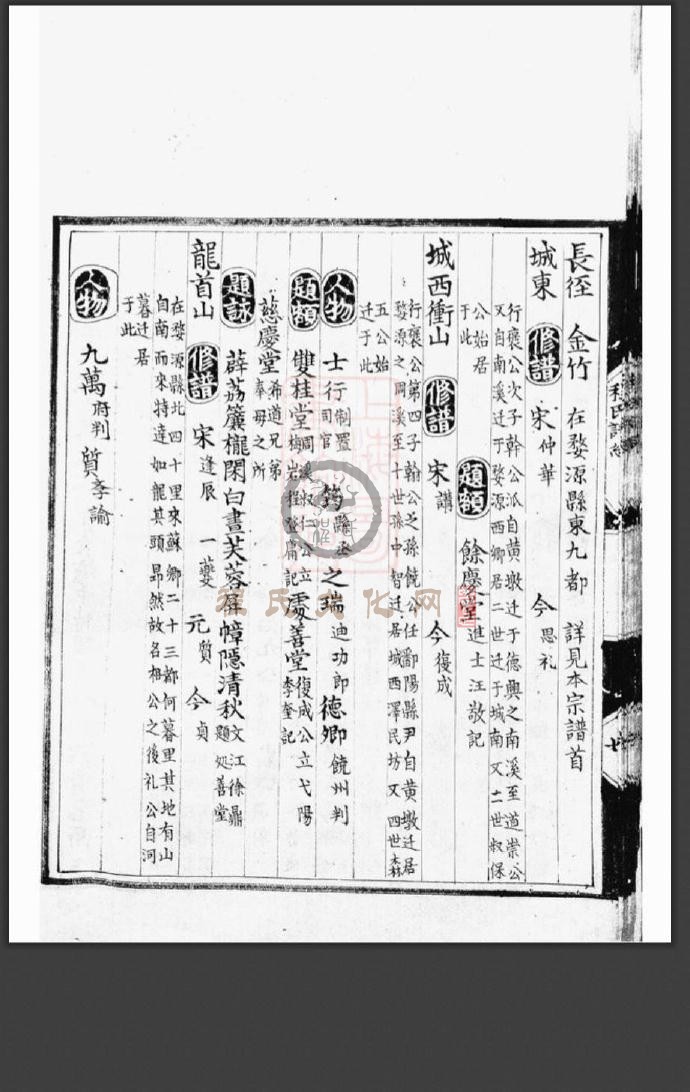 長徑 金竹 在婺源縣東九都 詳見本宗譜首
城東 修譜 宋 仲華 今 思礼
行褒公次子幹公派自黄墩迁于德興之南溪至道崇公
又自南溪迁于婺源西郷居二世迁于城南又二世叔保
公始居
于此
題額 餘慶堂 進士汪敬記
城西衝山 修譜 宋 講 今 復成
行褒公第四子翰公之孫饒公任鄱陽縣尹自黄墩迁居
婺源之周溪至十世孫中智迁居城西澤民坊又四世森
五公始
迁于此
人物 士行 制置司官 筠 縣丞 之瑞 迪功郎 德卿 饒州判
題額 雙桂堂 周溪叔仁公立 梅岩程登庸記 處善堂 復成公立弋陽李奎記
慈慶堂 希道兄弟奉母之所
題詠 薜荔簾櫳閑白晝芙蓉屏幛隱清秋 文江徐鼎題処善堂
龍首山 修譜 宋 逢辰 一夔 元 質 今 貞
在婺源縣北四十里來蘇郷二十三都何暮里其地有山
自南而來特達如龍其頭昻然故名相公之後礼公自河
暮迁居
于此
人物 九萬 府判 質 孝諭
程氏文化网